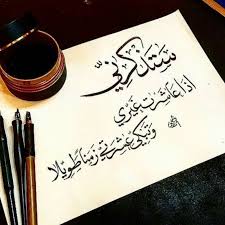 ستذكرني
إذا عاشرت غيري
وتبكي عشرتي زمنا طويلا